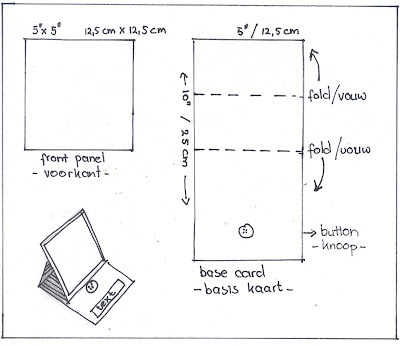 5" x 5" 12,5 cm x 12,5 cm
front panel
- voorkant -
5" / 12,5 cm
10" / 25 cm
fold/vouw
fold/vouw
button
- knoop -
base card
- basis kaart -
text